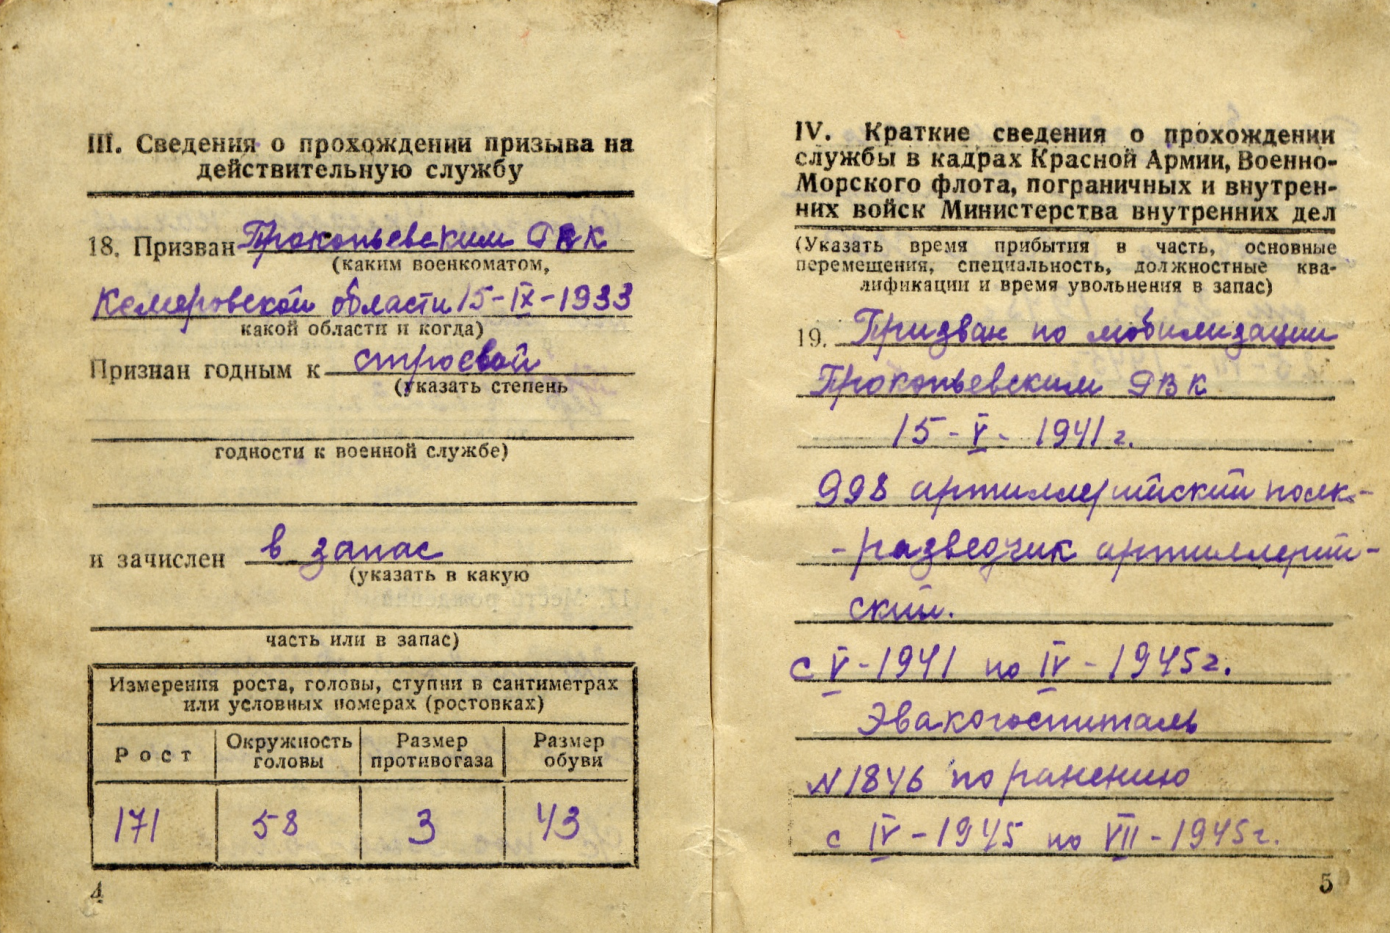 III. Сведения о прохождении призыва на
действительную службу
18. Призван Прокопьевским РВК
(каким военкоматом,
Кемеровской области 15-IX-1933
какой области и когда)
Признан годным к строевой
(указать степень
годности к военной службе)
и зачислен в запас
(указать в какую
часть или в запас)
Измерения роста, головы, ступни в сантиметрах
или условных номерах (ростовках)
Рост
Окружность
головы
Размер
противогаза
Размер
обуви
171 58 3 43
4
IV. Краткие сведения о прохождении
службы в кадрах Красной Армии, Военно-
Морского флота, пограничных и внутрен-
них войск Министерства внутренних дел
(Указать время прибытия в часть, основные
перемещения, специальность, должностные ква-
лификации и время увольнения в запас)
19. Призван по мобилизации
Прокопьевским РВК
15-V-1941 г.
998 артиллерийский полк-
- разведчик артиллерий-
ский.
с V-1941 по IV-1945г.
Эвакогоспиталь
N 1846 по ранению
с IV-1945 по VII-1945г.
5